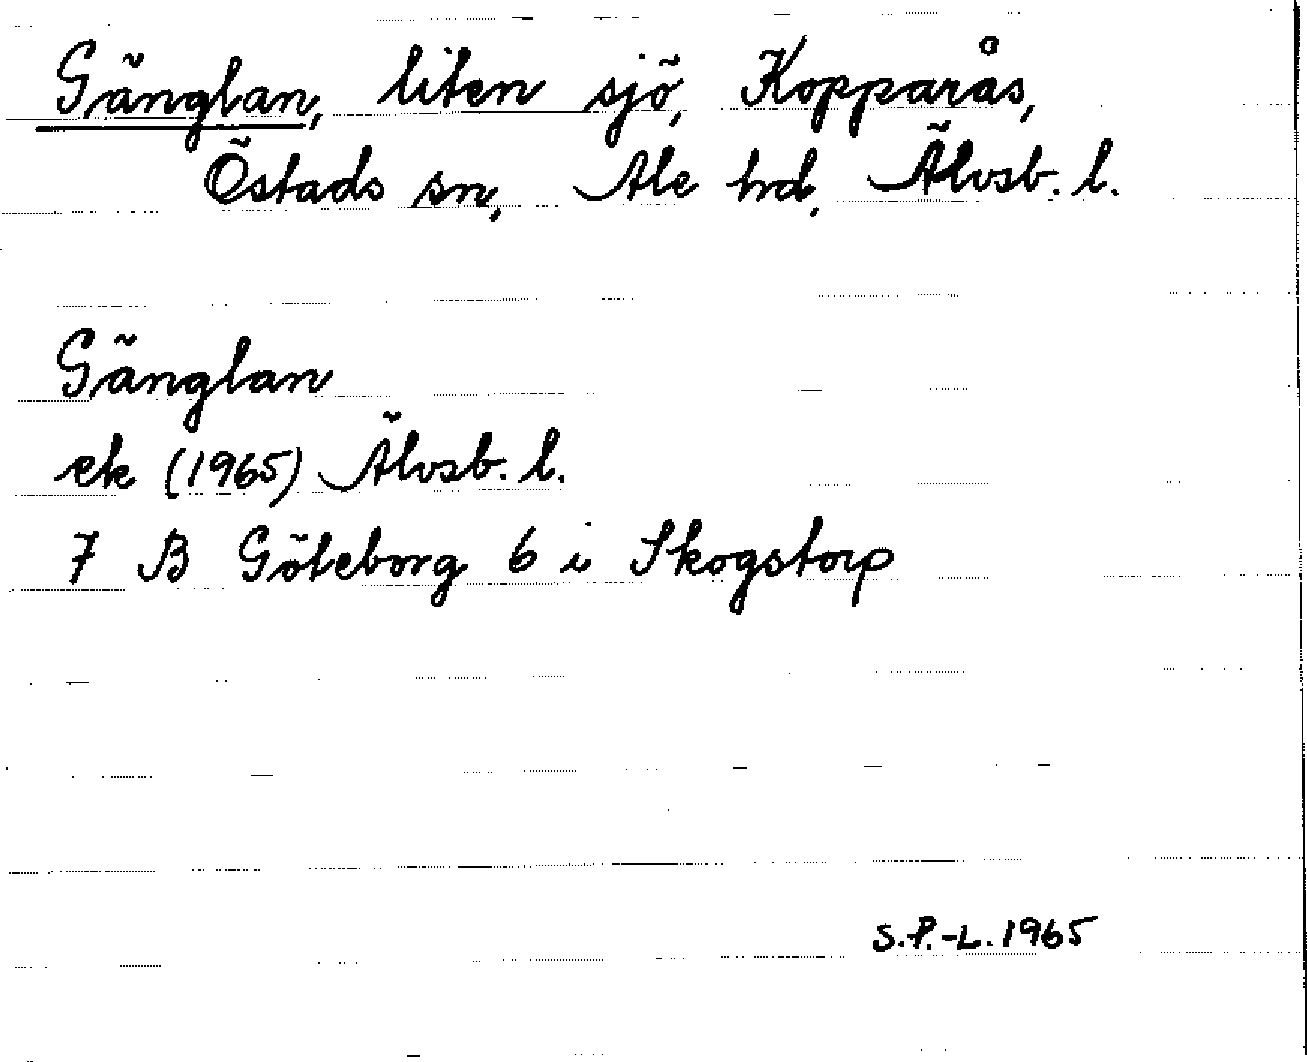 Gänglan, liten sjö, Kopparås,
Östads sn, Ale hd, Älvsb. l.
Gänglan
ek (1965) Älvsb. l.
7 B Göteborg 6 i Skogstorp
S.P.-L. 1965